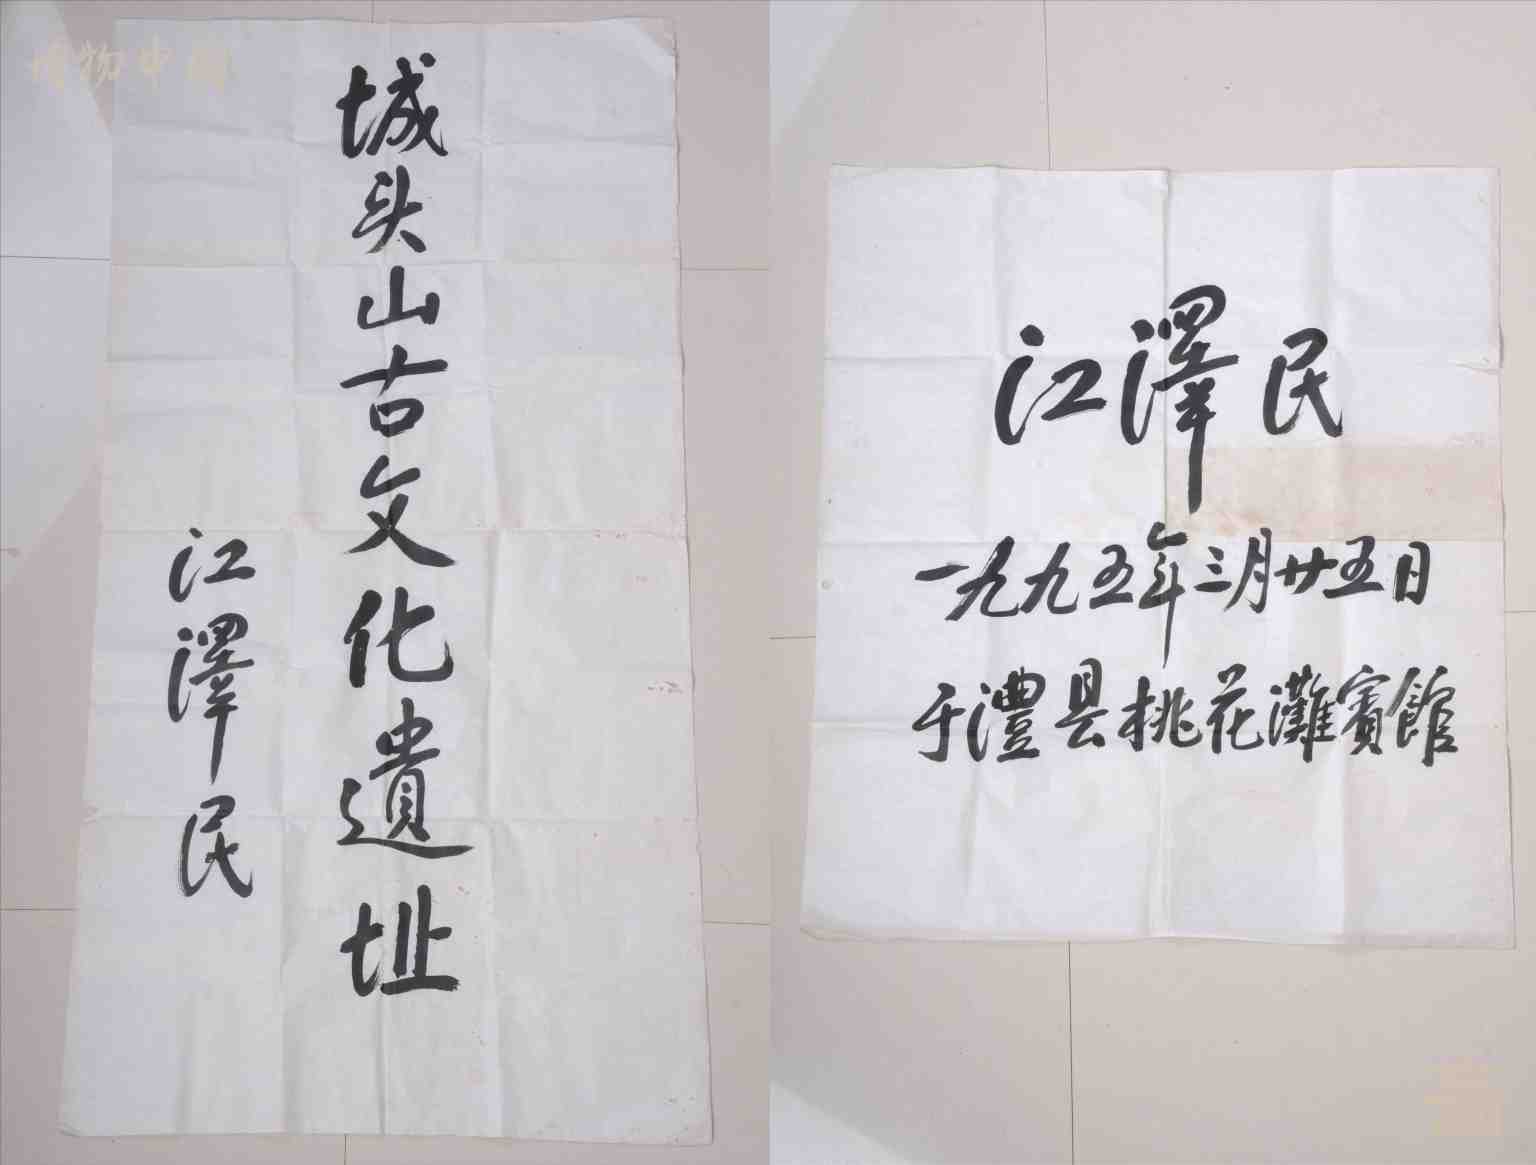 博物中国
城头山古文化遺址
江澤民
江澤民
一九九五年三月廿五日
于澧县桃花灘賓館